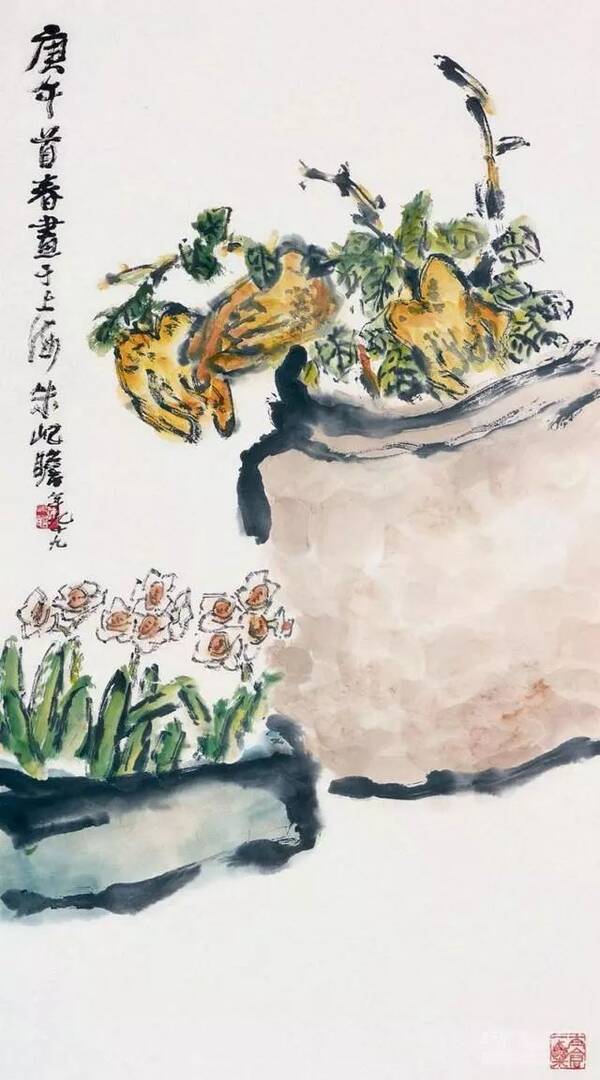 庚午首春畫于上海朱屺瞻
年九十九